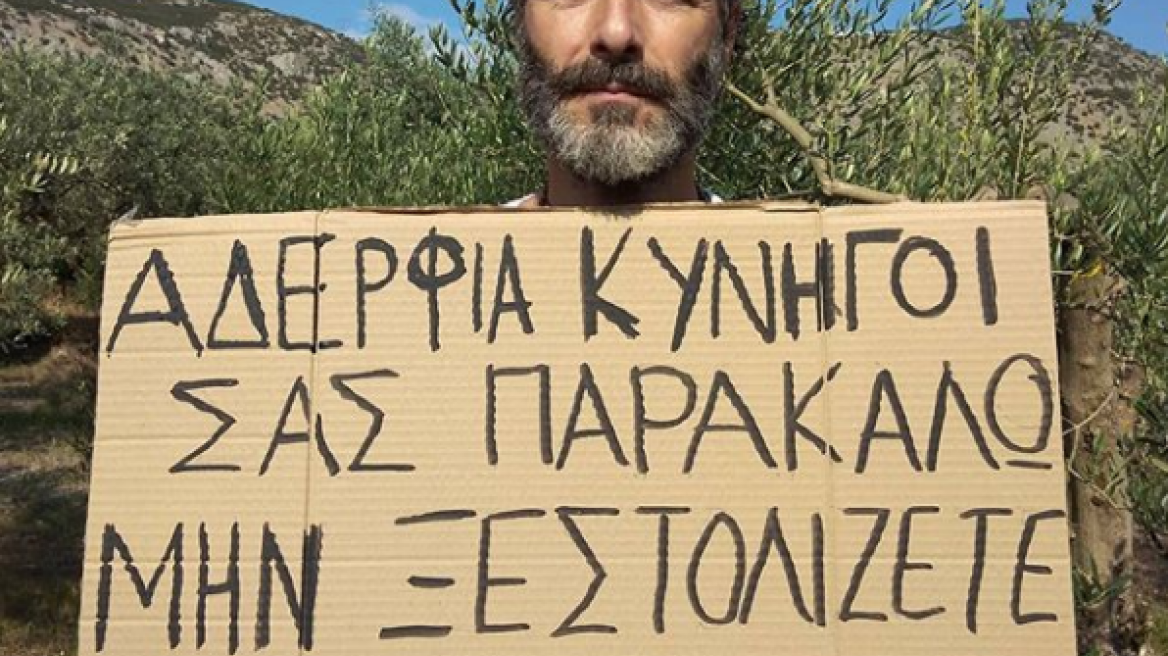 ΑΔΕΡΦΙΑ ΚΥΝΗΓΟΙ
ΣΑΣ ΠΑΡΑΚΑΛΩ
ΜΗΝ ΞΕΣΤΟΛΙΖΕΤΕ